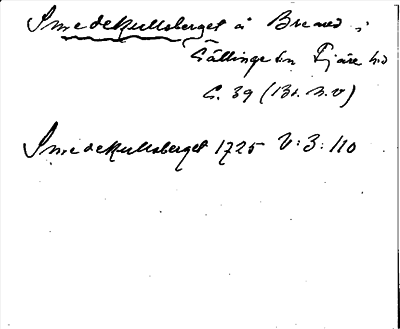 Smedekullsberget å Bremed i
Gällinge sn Fjäre hd
C. 39 (Br. n. v)
Smedekullsberget 1725 V:3:110